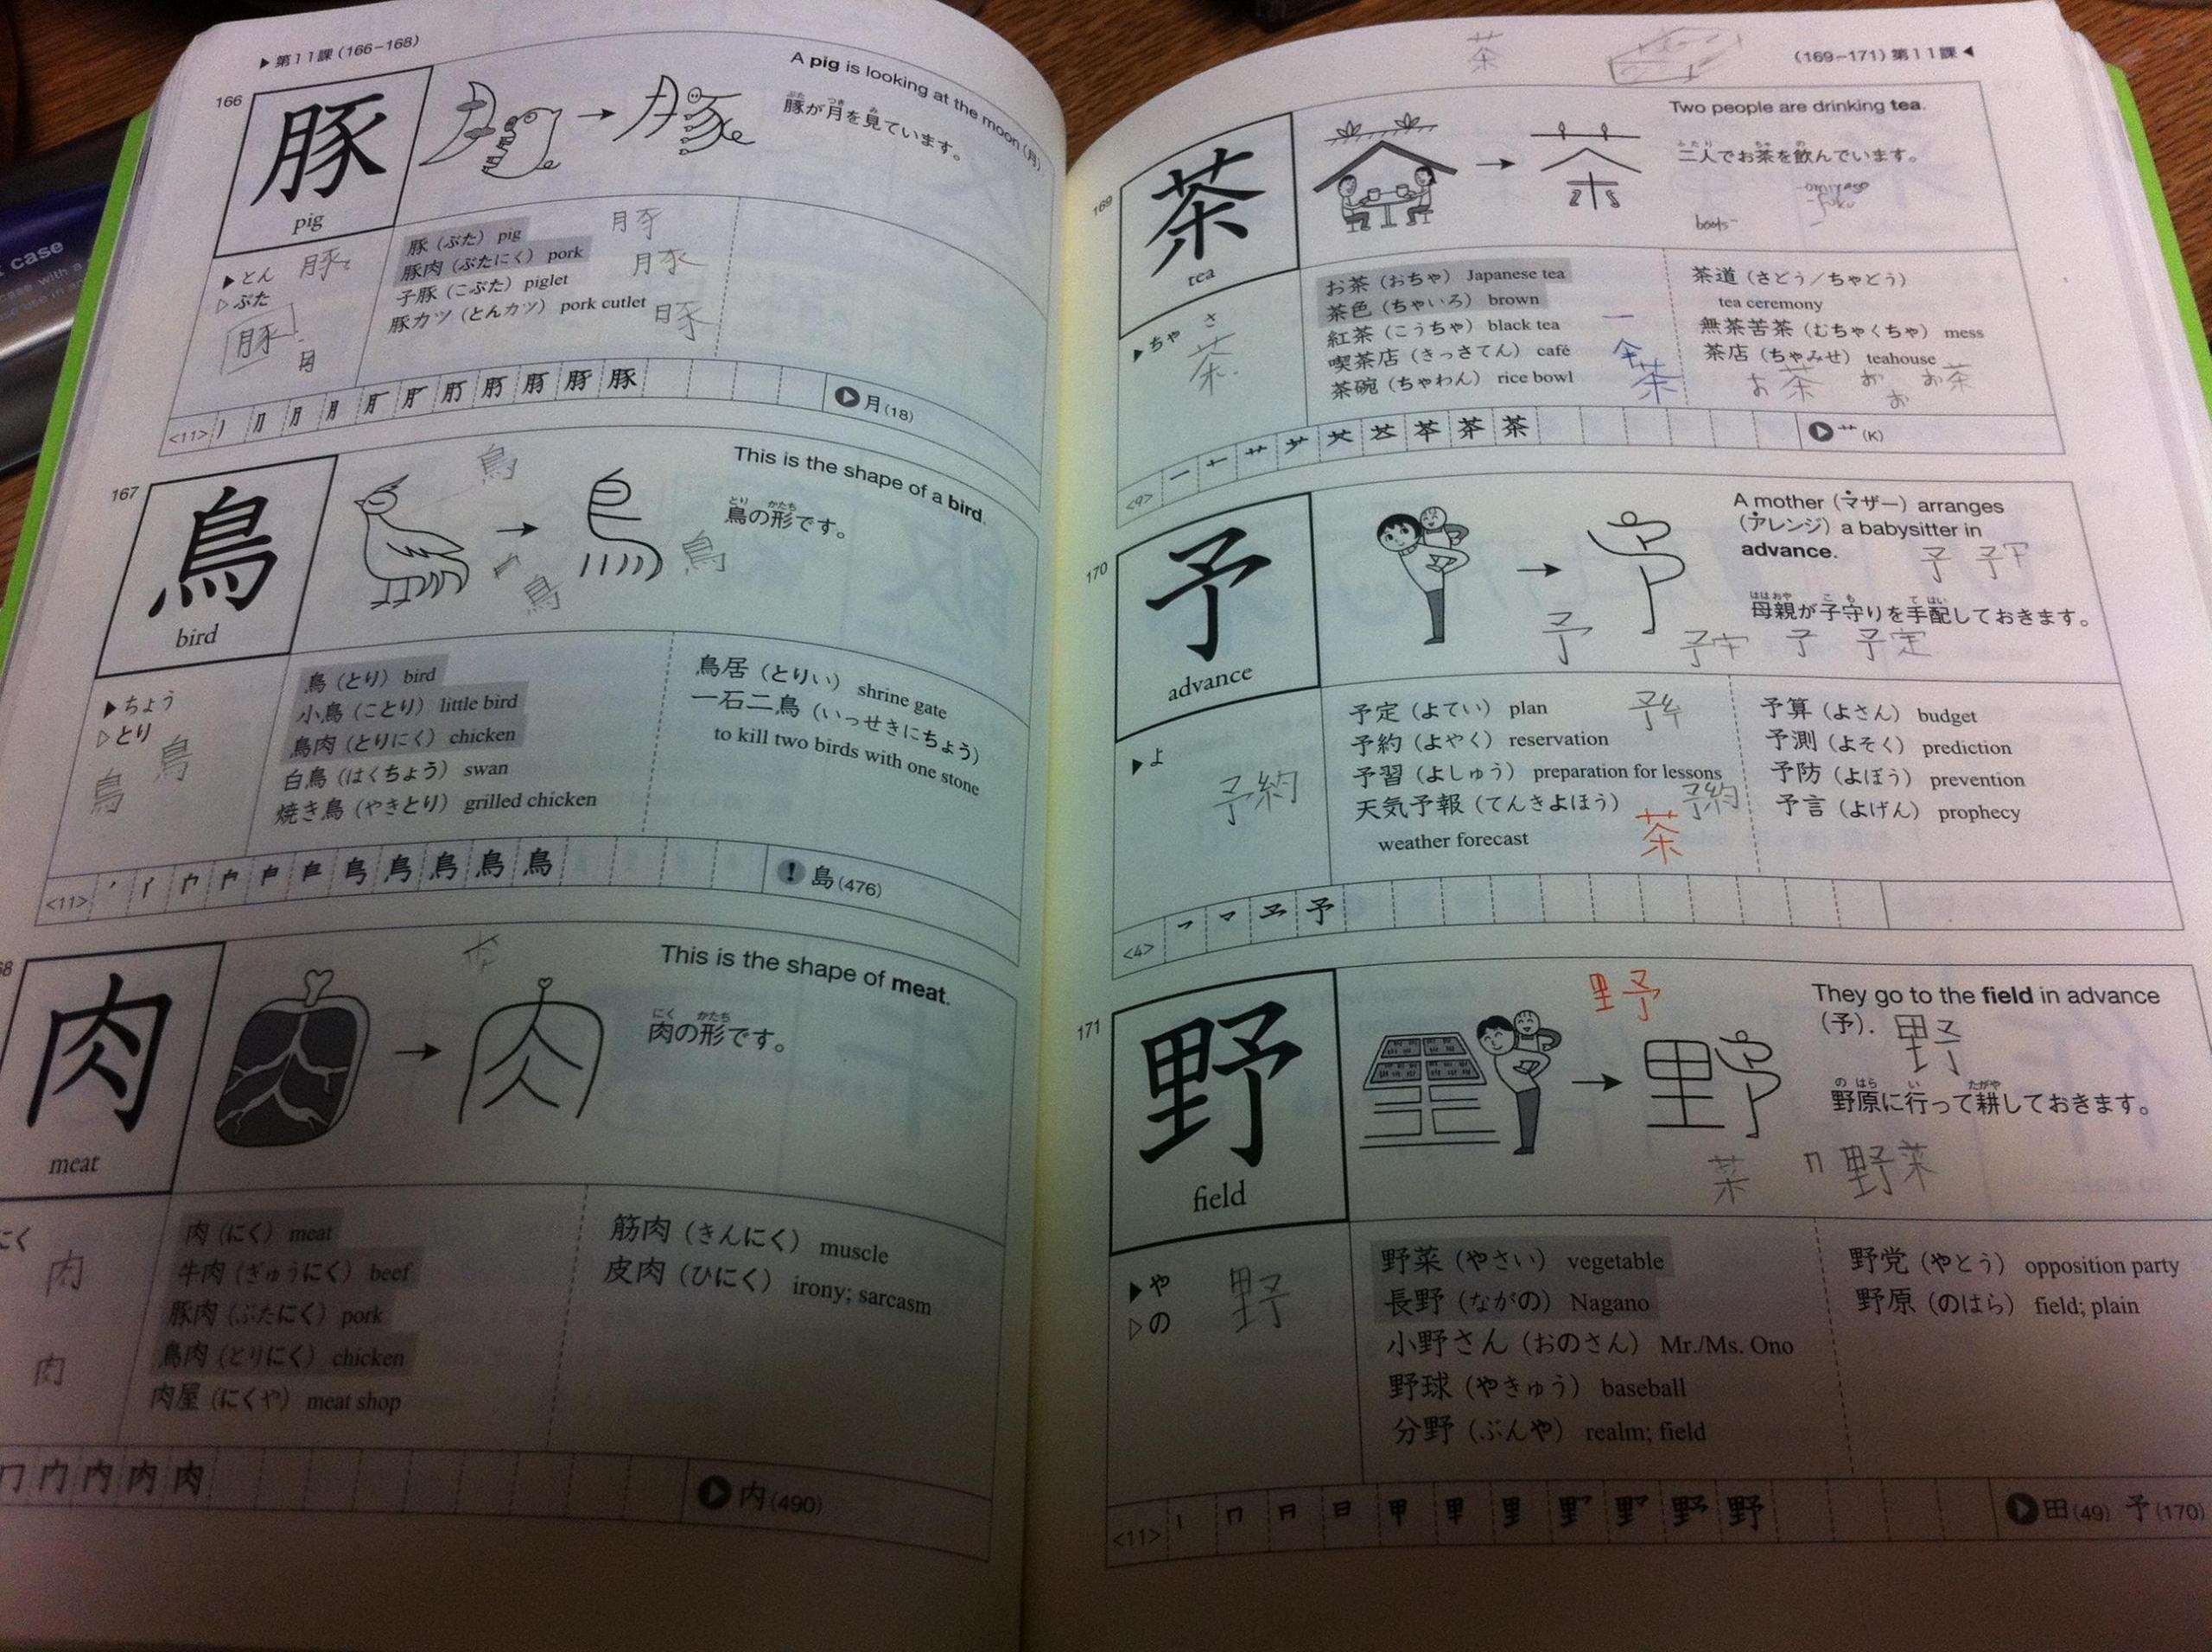 ▶第11課(166-168)
166
豚
pig
A pig is looking at the moon (月)
豚が月を見ています。
ぶた つき み
▶とん
▷ぶた
豚
豚
月
豚（ぶた）pig
豚肉（ぶたにく）pork
子豚（こぶた）piglet
豚カツ（とんカツ）pork cutlet
<11>
豚
▶月(18)
167
鳥
bird
This is the shape of a bird.
鳥の形です。
とり かたち
鳥
鳥
鳥
▶ちょう
▷とり
鳥
鳥
鳥（とり）bird
小鳥（ことり）little bird
鳥肉（とりにく）chicken
白鳥（はくちょう）swan
焼き鳥（やきとり）grilled chicken
鳥居（とりい）shrine gate
一石二鳥（いっせきにちょう）
to kill two birds with one stone
<11>
鳥
!島(476)
68
肉
meat
This is the shape of meat.
肉の形です。
にく かたち
にく
肉
肉
肉（にく）meat
牛肉（ぎゅうにく）beef
豚肉（ぶたにく）pork
鳥肉（とりにく）chicken
肉屋（にくや）meat shop
筋肉（きんにく）muscle
皮肉（ひにく）irony; sarcasm
肉
▶内(490)
case
case with a
(169-171)第11課◀
茶
169
茶
tea
Two people are drinking tea.
二人でお茶を飲んでいます。
ふたり ちゃ の
▶ちゃ
さ
茶
お茶（おちゃ）Japanese tea
茶色（ちゃいろ）brown
紅茶（こうちゃ）black tea
喫茶店（きっさてん）café
茶碗（ちゃわん）rice bowl
茶
茶道（さどう／ちゃどう）
tea ceremony
無茶苦茶（むちゃくちゃ）mess
茶店（ちゃみせ）teahouse
お茶 お お茶
お
<9>
茶
▶艹(K)
170
予
advance
A mother（マザー）arranges
（アレンジ）a babysitter in
advance.
母親が子守りを手配しておきます。
ははおや こも てはい
予
予
予定
▶よ
予約
予定（よてい）plan
予約（よやく）reservation
予習（よしゅう）preparation for lessons
天気予報（てんきよほう）
weather forecast
予約
茶
予算（よさん）budget
予測（よそく）prediction
予防（よぼう）prevention
予言（よげん）prophecy
<4>
予
171
野
field
野
They go to the field in advance
（予）.
野
野原に行って耕しておきます。
のはら い たがや
菜
野菜
▶や
▷の
野
野菜（やさい）vegetable
長野（ながの）Nagano
小野さん（おのさん）Mr./Ms. Ono
野球（やきゅう）baseball
分野（ぶんや）realm; field
野党（やとう）opposition party
野原（のはら）field; plain
<11>
野
▶田(49) 予(170)